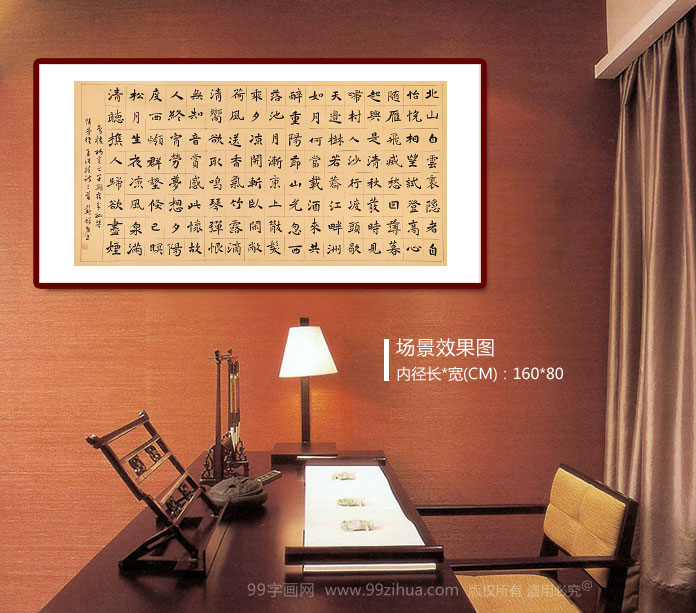 北山白雲裏隱者自
怡悅相望試登高心
隨雁飛感愁因薄暮
起興是清秋發時見
歸村人沙行渡頭歇
天邊樹若薺江畔洲
如月何當載酒來共
醉重陽節山光忽西
落池月漸東上散髮
乘夕凉開軒臥閑敞
荷風送香氣竹露滴
清響欲取鳴琴彈恨
無知音賞感此懷故
人終宵勞夢想夕陽
度西嶺群壑倏已暝
松月生夜凉風泉滿
清聽樵人歸欲盡煙
场景效果图
内径长*宽(CM)：160*80
99字画网 www.99zihua.com 版权所有 盗用必究@